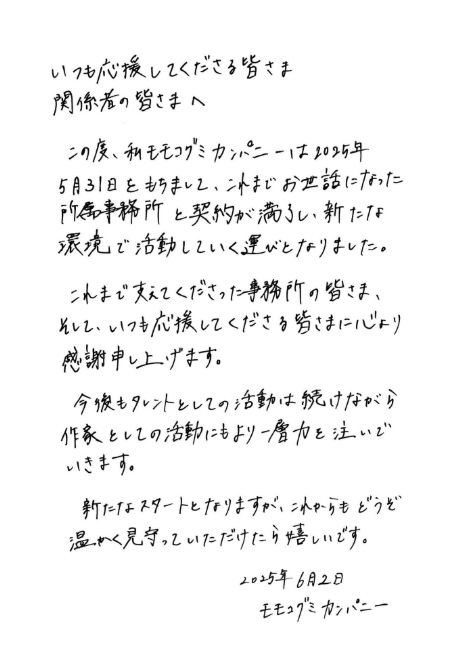 いつも応援してくださる皆さま
関係者の皆さまへ
この度、私モモコグミカンパニーは2025年
5月31日をもちまして、これまでお世話になった
所属事務所と契約が満了し、新たな
環境で活動していく運びとなりました。
これまで支えてくださった事務所の皆さま、
そして、いつも応援してくださる皆さまに心より
感謝申し上げます。
今後もタレントとしての活動は続けながら
作家としての活動にもより一層力を注いで
いきます。
新たなスタートとなりますが、これからもどうぞ
温かく見守っていただけたら嬉しいです。
2025年6月2日
モモコグミカンパニー